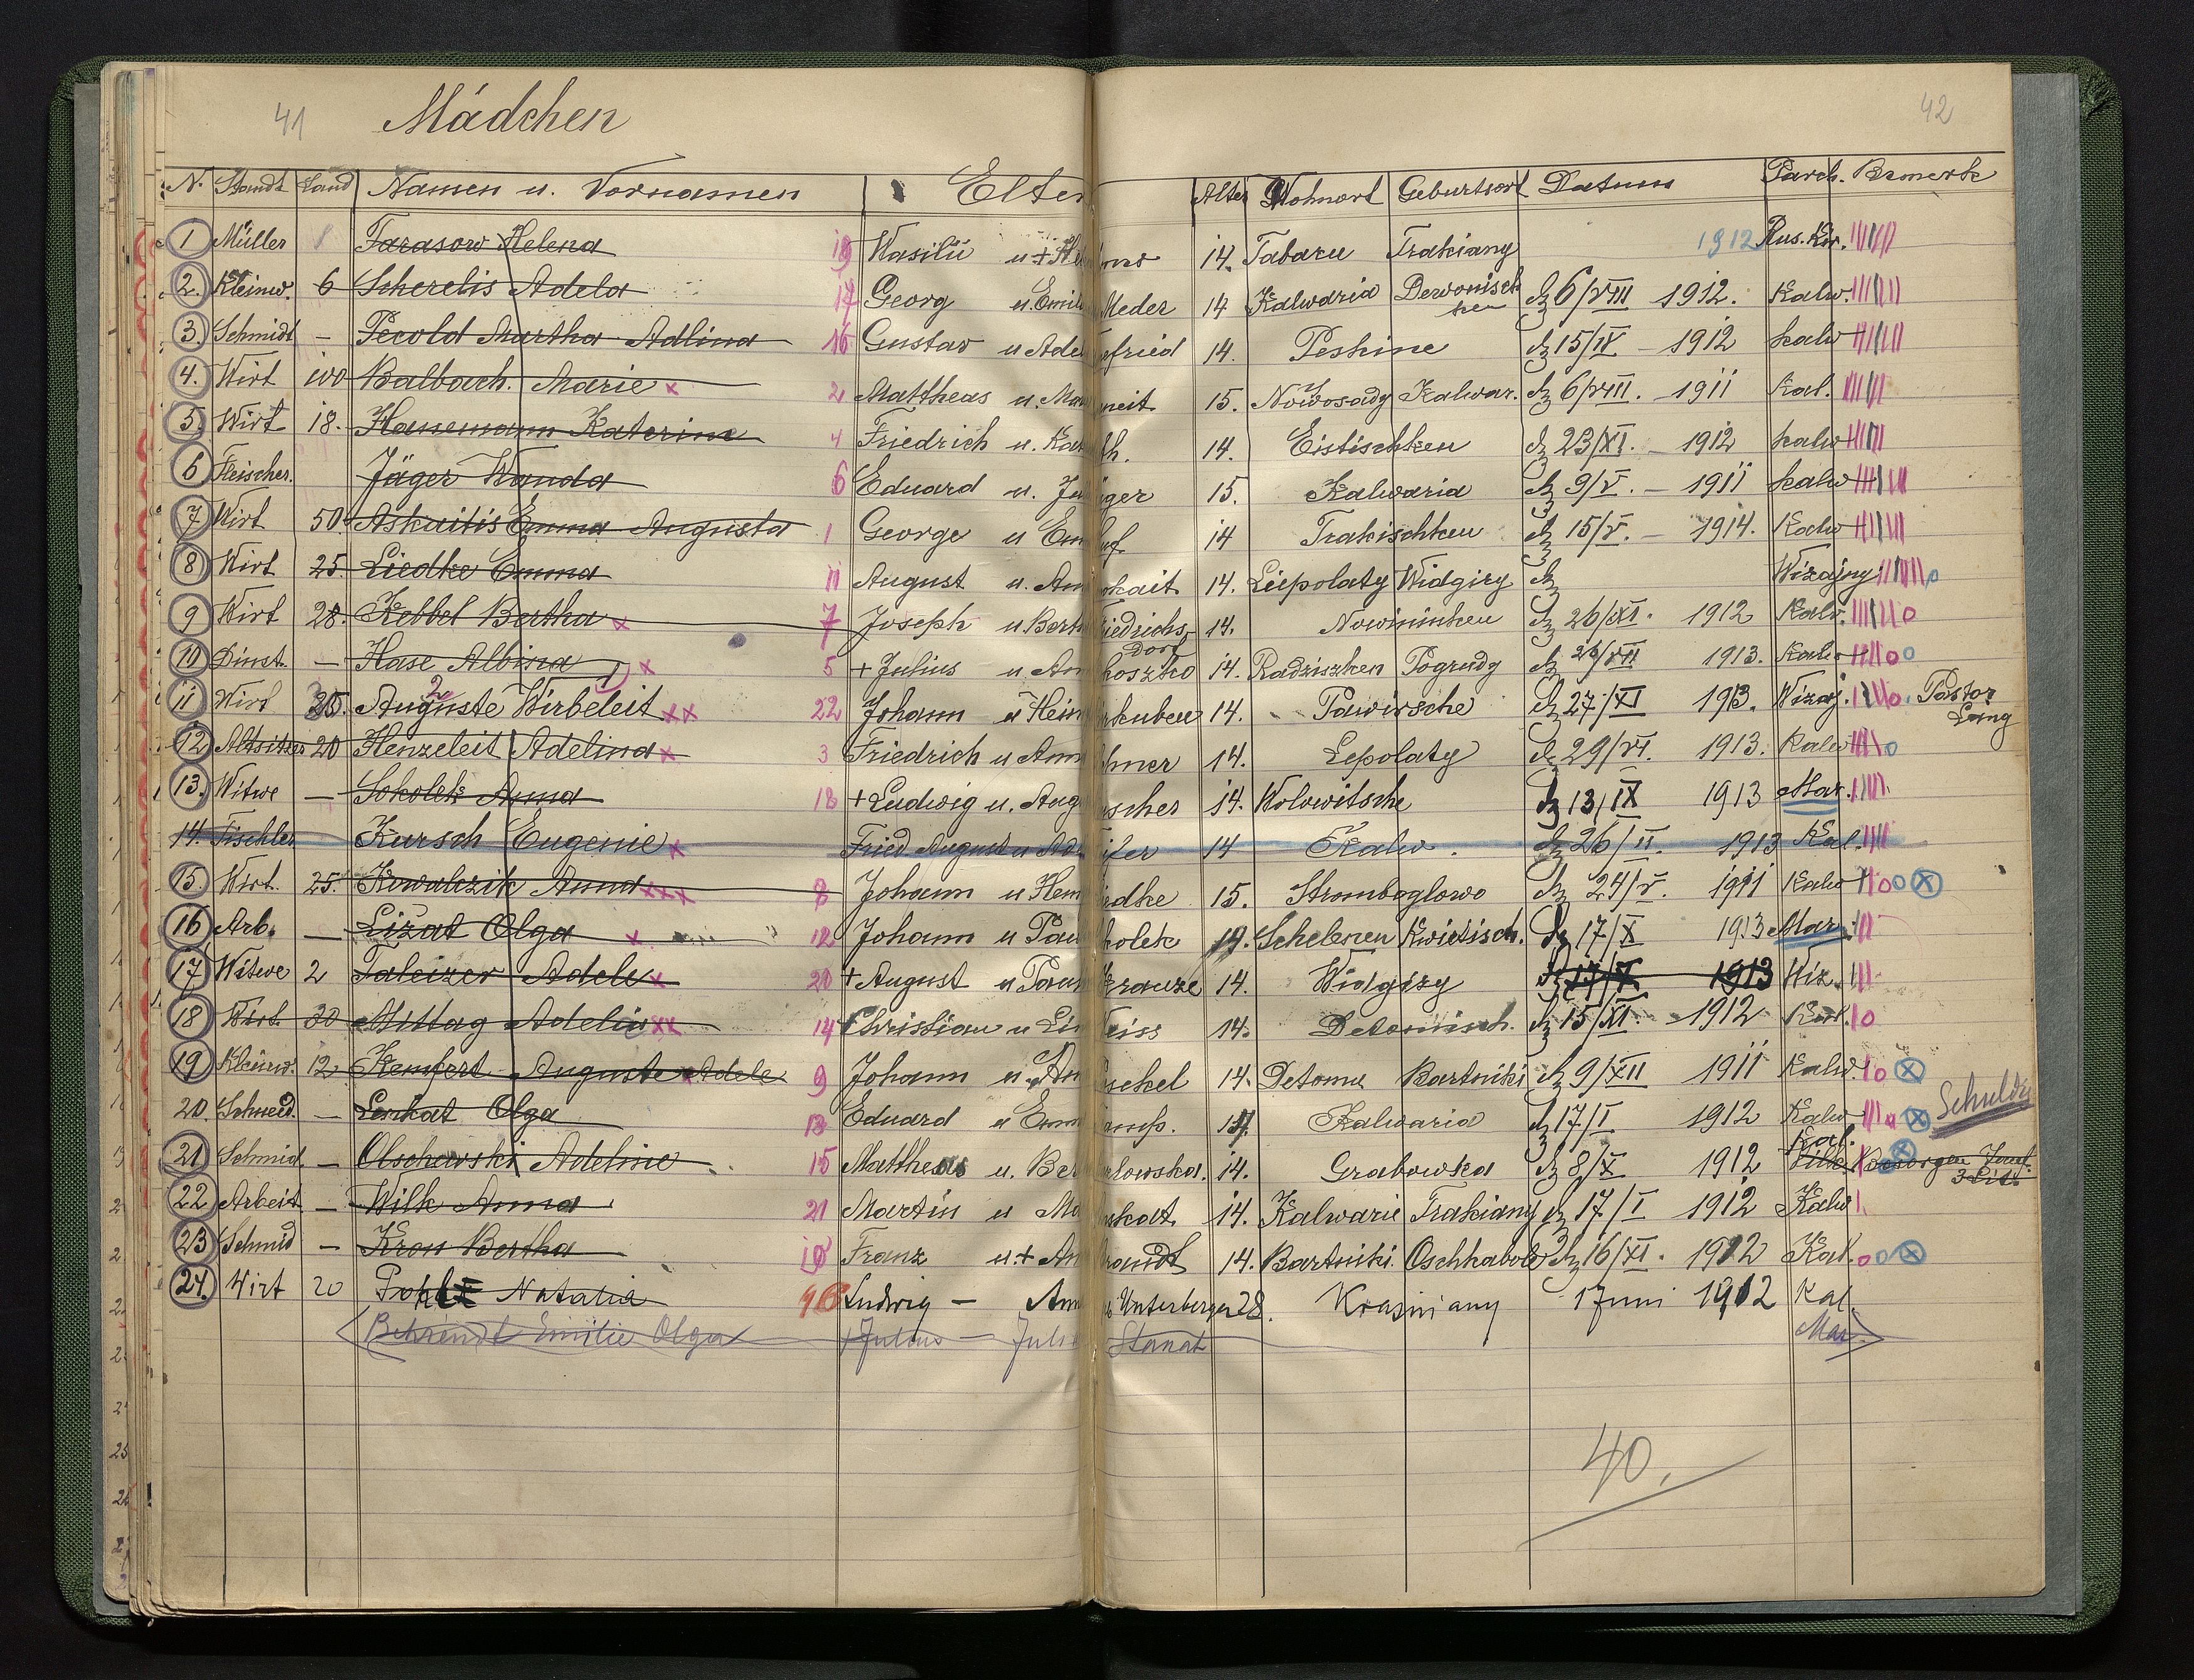 41 Mädchen 42
N. Standt Land Namen u. Vornamen Elter Alter Wohnort Geburtsort Datum Parch. Bemerk
1 Müller Tarasow Helena 19 Wasilii u + 14. Tabaru Trakiany 1912 Rus. Kir.
2. Kleinw. 6 Scherelis Adela 17 Georg u. Emil Meder 14 Kalwaria Derwonisch ken d. 6/VIII 1912. Kalw.
3. Schmidt – Pecold Martha Adlina 16 Gustav u Ade fried 14. Peskine d. 15/IX – 1912 Kalw
4. Wirt 100 Balbach. Marie x 2 Mattheas u. Ma neit 15. Nowosady Kalwar. d. 6/VIII. – 1911 Kal.
5. Wirt 18. Hansemann Katerina 4 Friedrich u. Ka th. 14. Eistischken d. 23/XI. – 1912 Kalw
6 Fleischer. Jäger Wanda 6 Eduard u. Ju ger 15. Kalwaria d. 9/V. – 1911 Kalw
7 Wirt 50 Askaitis Emma Augusta 1 George u Em uf 14 Trakischken d. 15/V. – 1914. Kalw
8 Wirt 25. Liedke Emma 11 August u. An kait 14. Liepolaty Widgiry d. Wizajny
9 Wirt 28. Kebbel Bertha x 7 Joseph u Berth iedrichs dorf 14. Nowininken d. 26/XI. 1912 Kalw.
10 Dinst. – Hase Albina x 5 + Julius u An koszko 14. Radziszken Pogrudy d. 1913. Kalw
11 Wirt 25. Auguste Wirbeleit xx 22 Johann u Hein kuben 14. Pawirsche d. 27/XI 1913. Wizaj. Pastor
12 Altsitzer 20 Henzeleit Adelina x 3 Friedrich u Ann hner 14. Lepolaty d. 29/VI. 1913. Kalw
13. Witwe – Sokolek Anna 18 + Ludwig u. Aug scher 14. Wolowitsche d. 13/IX 1913 Mar.
14. Tischler Kursch Eugenie x Fried August u Ad ifer 14 Kalw. d. 26/II. 1913 Kal.
15. Wirt. 25. Kowalczik Anna xxx 8 Johann u Hen dke 15. Stromboglowo d. 24/V. 1911 Kalw
16 Arb. – Lizat Olga x 12 Johann u Pau kolek 14. Schelenen Kwietisch. d. 17/X 1913 Mar.
17 Witwe 2 Taleizer Adele x 20 + August u Pau Krauze 14. Widgiry d. 17/X 1913 Wiz.
18 Wirt 30 Mittag Adelia xx 14 Christian u Li eiss 14. Detomisch. d. 15/XI. 1912 Kal.
19 Kleinw. 12 Kemfert Auguste Adele 9 Johann u. An schel 14. Detomu Bartniki d. 9/XII 1911 Kalw.
20. Schneid. – Lenkat Olga 13 Eduard u Em 14. Kalwaria d. 17/I 1912 Kalw Schuldig
21 Schmid – Olschewski Adeline 15 Mattheas u. Be lowska. 14. Grabowska d. 8/X 1912 Kal.
22 Arbeit – Wilk Anna 21 Martin u Ma skat 14. Kalwarie Trakiany d. 17/I 1912 Kalw
23 Schmid – Kron Bertha 10 Franz u. + An randt 14. Bartniki. Oschkabole d. 16/XI. 1912 Kal.
24. Wirt 20 Pohl Natalia Ludwig – Am Unterberger 28. Krasniany 1 Juni 1912 Kal.
Behrendt Emilie Olga + Julius – Juli Stanat Mar.
40.